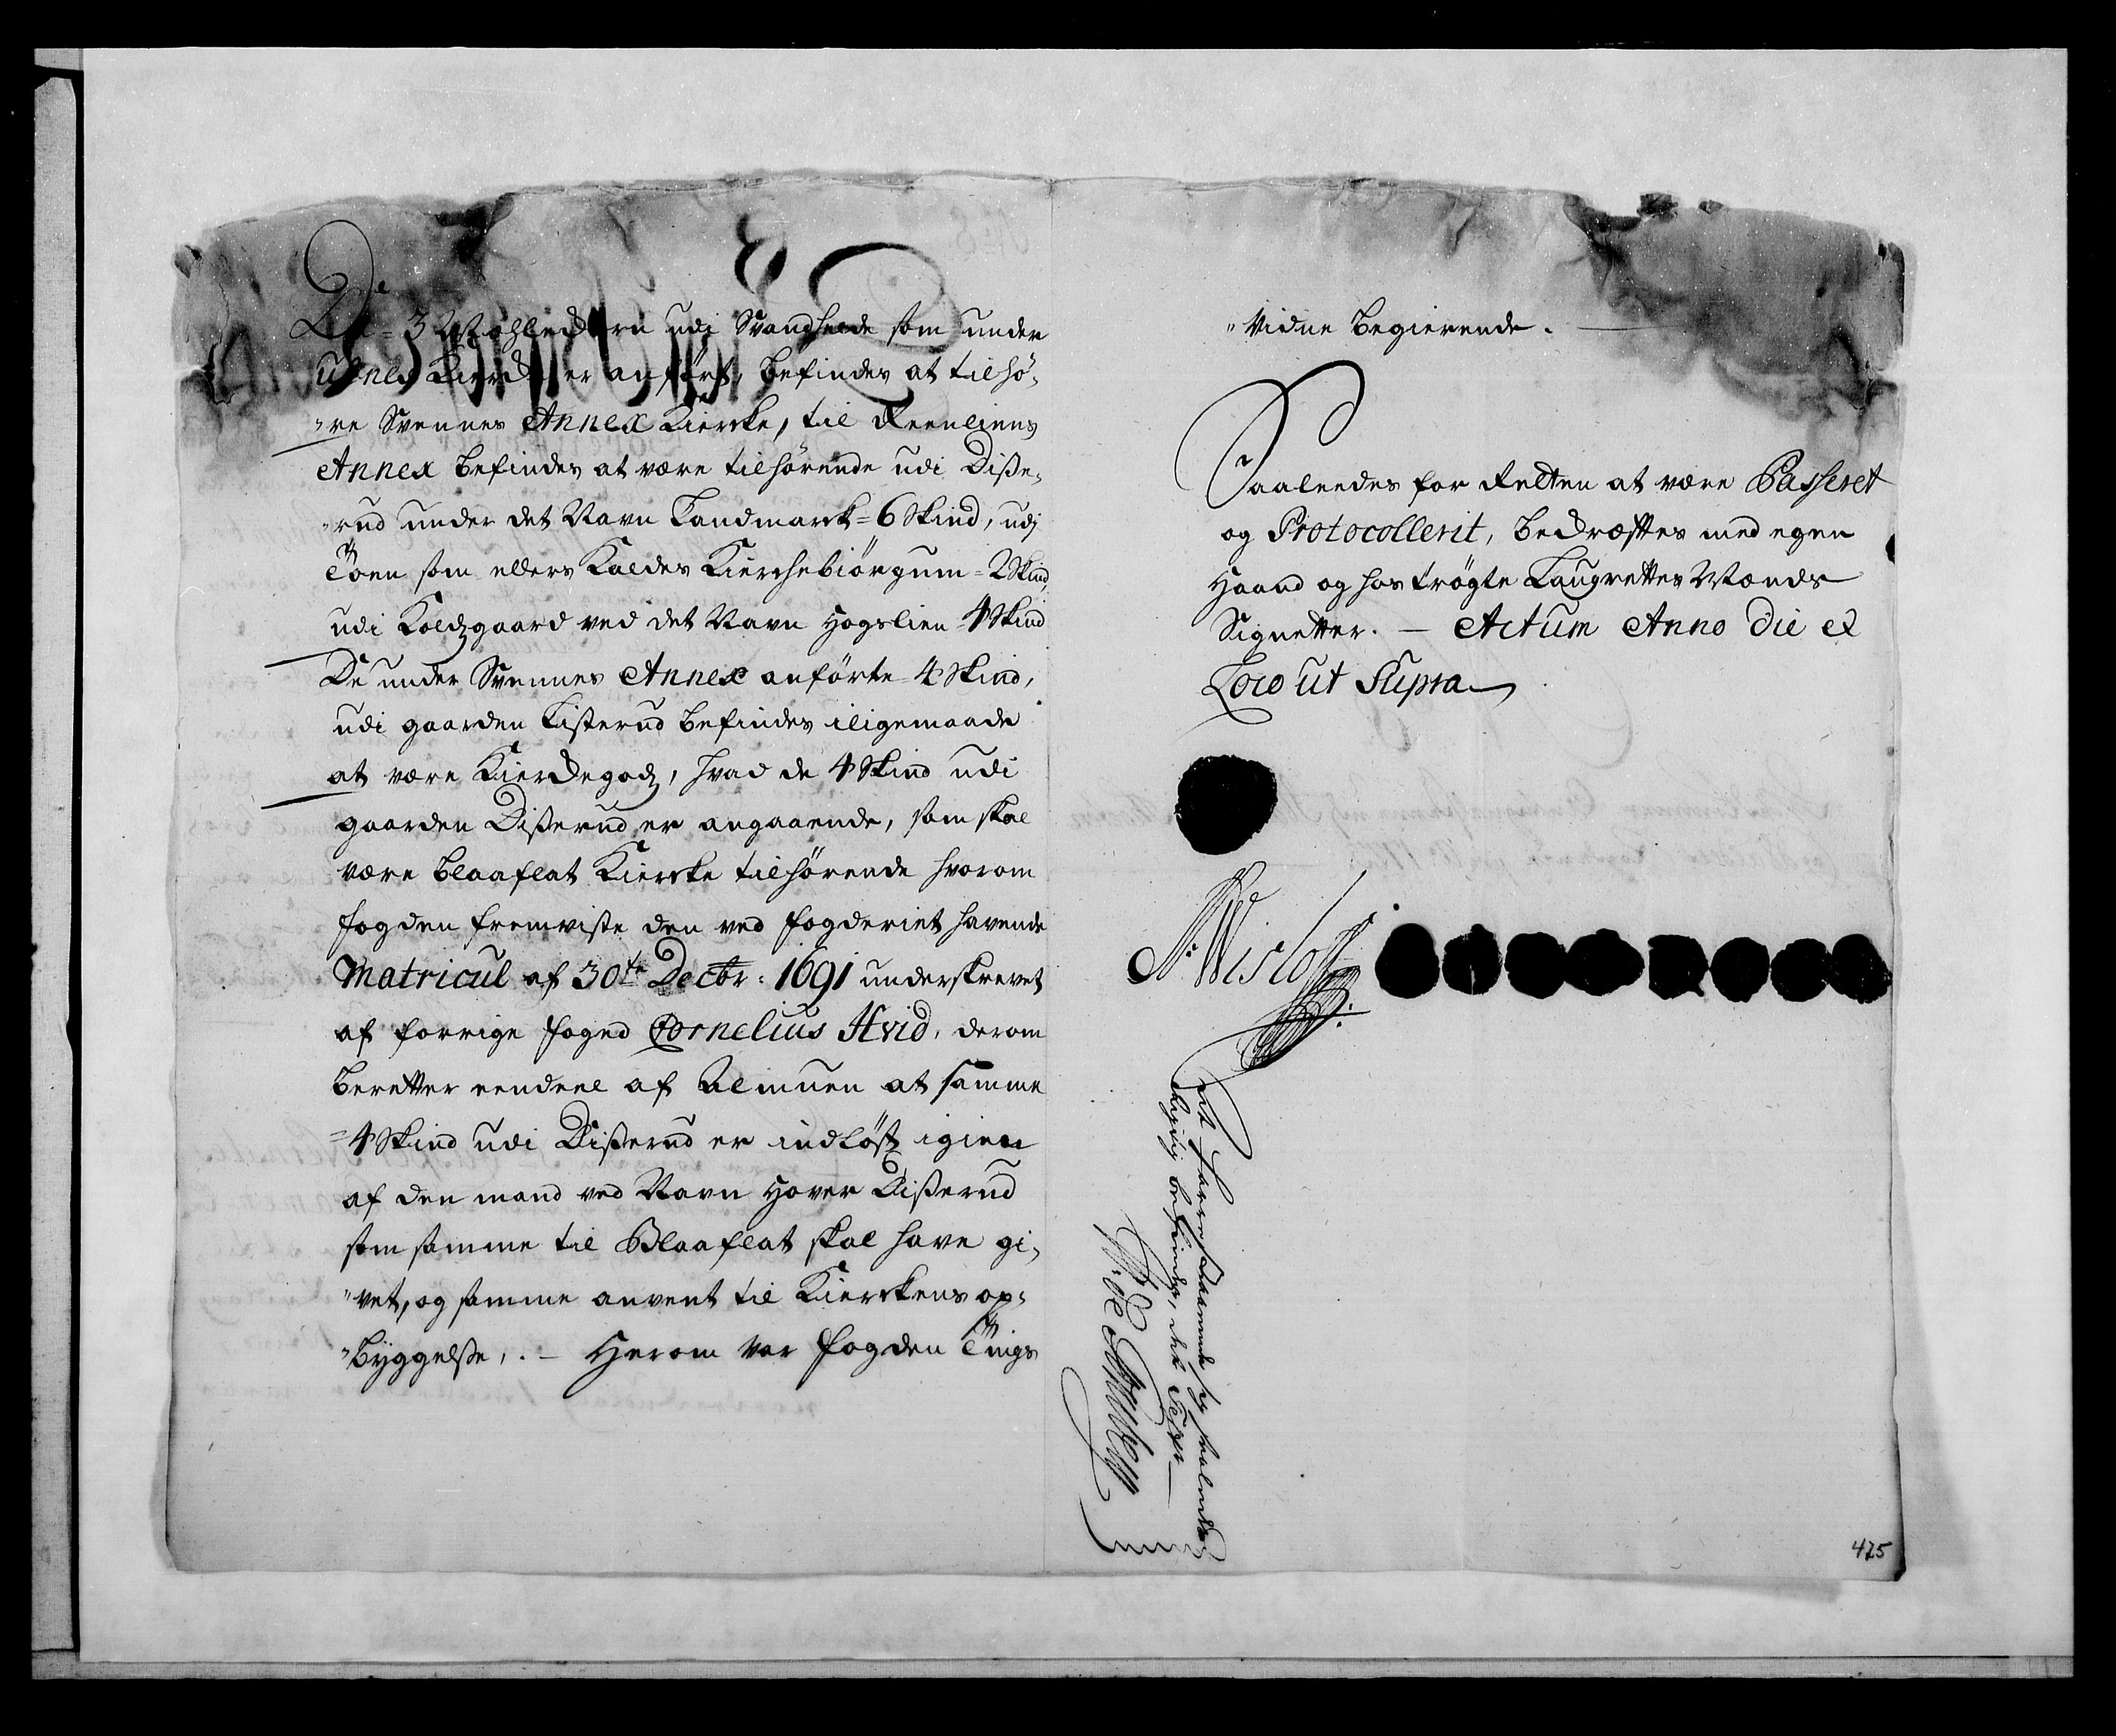 De = 3 udi Svandheede som under
er anført, befindes at tilhö-
"re Svennes Annex Kiercke, til Reenliens
Annex befindes at være tilhørende udi Diße-
"rud under det Navn Landmarck = 6 Skind, udi
Toen som ellers Kaldes Kierchebiörgum = 2 Skind,
udi Koldzgaard ved det Navn Hogslien = 4 Skind
De under Svennes Annex anførte = 4 Skind,
udi gaarden Lißerud befindes iligemaade
at være Kierckegodz, hvad de 4 Skind udi
gaarden Dißerud er angaaende, som skal
være Blaaflat Kiercke tilhørende hvorom
fogden fremviste den ved fogderiet havende
Matricul af 30te Decbr: 1691 underskrevet
af forrige foged Cornelius Hvid, derom
beretter eendeel af Almuen at samme
= 4 Skind udi Dißerud er indløst igien
af den mand ved Navn Hover Dißerud
som samme til Blaaflat skal have gi-
"vet, og samme anvent til Kierckens op-
"byggelse, . — Herom var fogden Tings
"Vidne begierende. —
Saaledes for Retten at være Passeret
og Protocollerit, bekræftes med egen
Haand og hoströgte Laugrettes Mænds
Signetter. — Actum Anno die et
Loco ut Supra
N: Wisloff
befindes, det
425